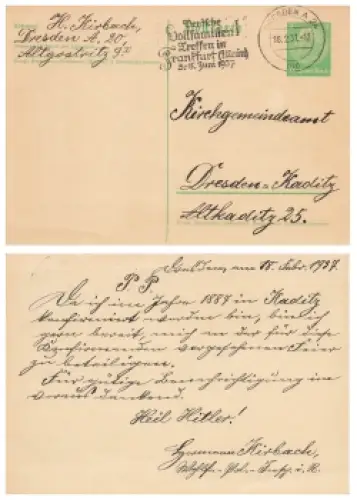 H. Kirbach,
Dresden A. 20,
Altgostritz 9 II
Deutsche
Vollfamilien
Treffen in
Frankfurt (Main)
5.-8. Juni 1937
DRESDEN A
18.2.37.
Kirchgemeindeamt
Dresden-Kaditz
Altkaditz 25.
Dresden am 18. Febr. 1937.
P. P.
Da ich im Jahre 1887 in Kaditz
konfirmiert worden bin, bin ich
gern bereit, mich an der für diese
Konfirmanden vorgesehenen Feier
zu beteiligen.
Für gütige Benachrichtigung im
voraus dankend.
Heil Hitler!
Hermann Kirbach,
i. R.